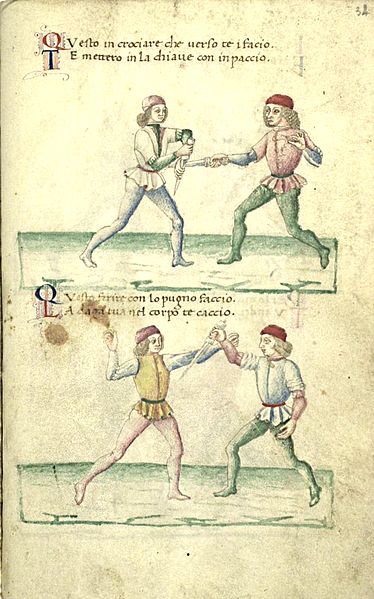 34
Questo in crociare che verso te i facio.
Te mettero in la chiave con inpaccio.
Questo ferire con lo pugno faccio.
La daga tua nel corpo te caccio.